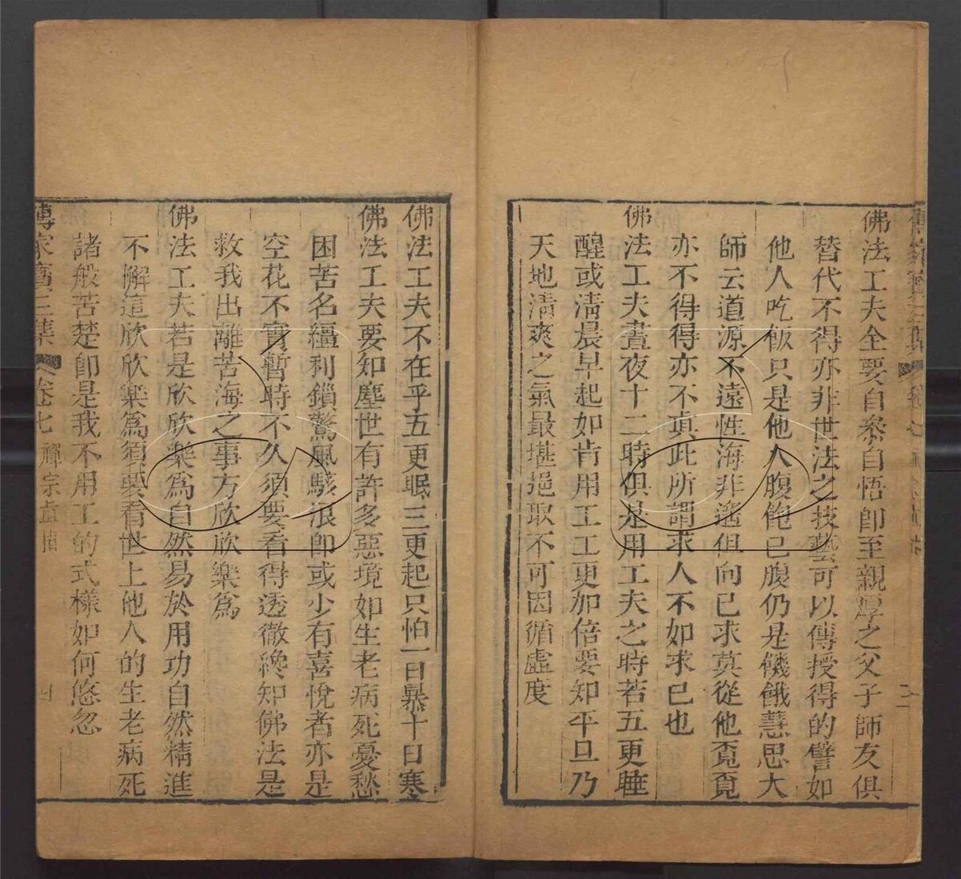 佛法工夫全要自叅自悟即至親厚之父子師友俱
替代不得亦非世法之技藝可以傳授得的譬如
他人吃飯只是他人腹飽己腹仍是饑餓慧思大
師云道源不遠性海非遙但向己求莫從他覓覓
亦不得得亦不真此所謂求人不如求己也
佛法工夫晝夜十二時俱是用工夫之時若五更睡
醒或清晨早起如肯用工工更加倍要知平旦乃
天地清爽之氣最堪挹取不可因循虛度
佛法工夫不在乎五更眠三更起只怕一日暴十日寒
佛法工夫要知塵世有許多惡境如生老病死憂愁
困苦名韁利鎖驚風駭浪即或少有喜悅者亦是
空花不實暫時不久須要看得透徹纔知佛法是
救我出離苦海之事方欣欣樂為
佛法工夫若是欣欣樂為自然易於用功自然精進
不懈這欣欣樂為須要看世上他人的生老病死
諸般苦楚即是我不用工的式樣如何悠忽
傳家寶三集 卷七 禪宗直指 四